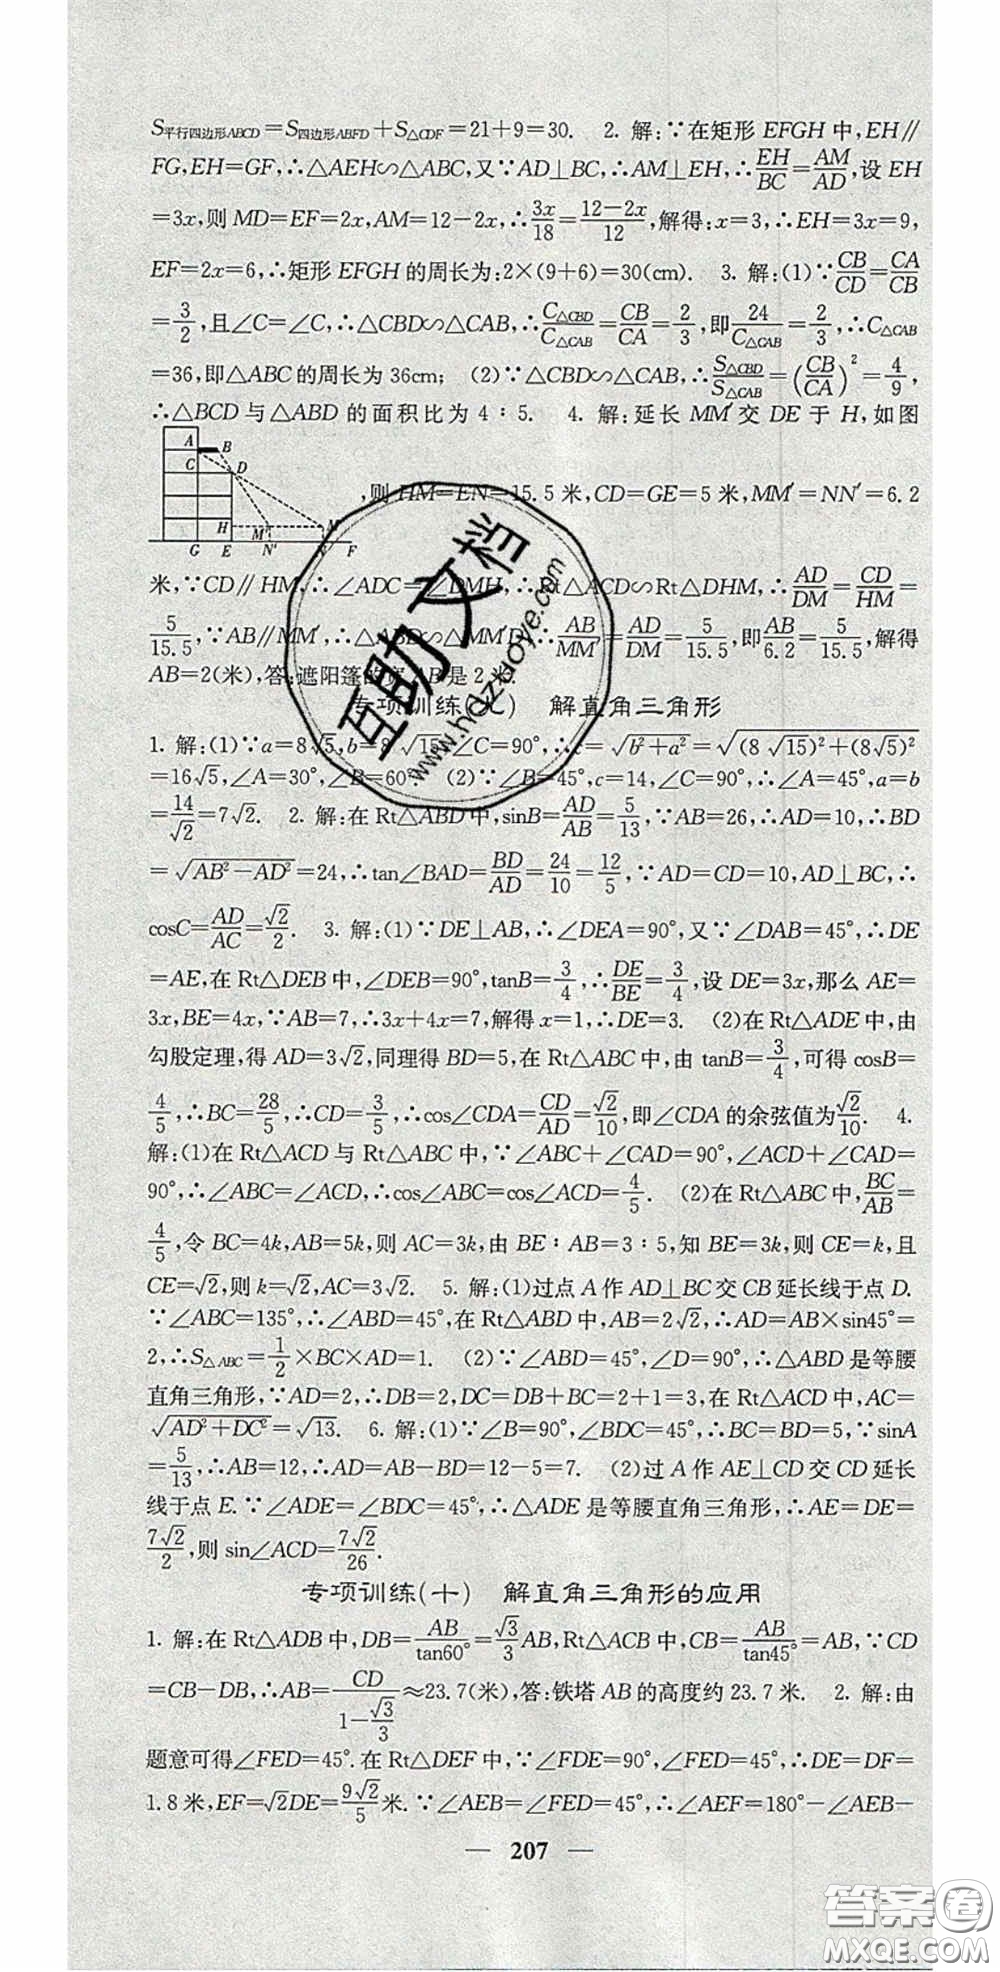 S平行四边形ABCD=S四边形ABFD+S△CDF=21+9=30. 2. 解:∵在矩形 EFGH 中,EH∥
FG,EH=GF,∴△AEH∽△ABC,又∵AD⊥BC,∴AM⊥EH,∴EH/BC=AM/AD,设 EH
=3x,则 MD=EF=2x,AM=12-2x,∴3x/18=(12-2x)/12,解得:x=3,∴EH=3x=9,
EF=2x=6,∴矩形 EFGH 的周长为:2×(9+6)=30(cm). 3. 解:(1)∵CB/CD=CA/CB
=3/2,且∠C=∠C,∴△CBD∽△CAB,∴C△CBD/C△CAB=CB/CA=2/3,即24/C△CAB=2/3,∴C△CAB
=36,即△ABC 的周长为 36cm; (2)∵△CBD∽△CAB,∴S△CBD/S△CAB=(CB/CA)²=4/9,
∴△BCD 与△ABD 的面积比为 4∶5. 4. 解:延长 MM′交 DE 于 H,如图
A B C D H M′ M G E N′ N F
,则 HM=EN=15.5 米,CD=GE=5 米,MM′=NN′=6.2
米,∵CD∥HM,∴∠ADC=∠DMH,∴Rt△ACD∽Rt△DHM,∴AD/DM=CD/HM=
5/15.5,∵AB∥MM′,∴△ABD∽△MM′D,∴AB/MM′=AD/DM=5/15.5,即AB/6.2=5/15.5,解得
AB=2(米),答:遮阳篷的宽AB是 2 米.
专项训练(九) 解直角三角形
1. 解:(1)∵a=8√5,b=8√15,∠C=90°,∴c=√(b²+a²)=√((8√15)²+(8√5)²)
=16√5,∠A=30°,∠B=60°. (2)∵∠B=45°,c=14,∠C=90°,∴∠A=45°,a=b
=14/√2=7√2. 2. 解:在 Rt△ABD中,sinB=AD/AB=5/13,∵AB=26,∴AD=10,∴BD
=√(AB²-AD²)=24,∴tan∠BAD=BD/AD=24/10=12/5,∵AD=CD=10,AD⊥BC,∴
cosC=AD/AC=√2/2. 3. 解:(1)∵DE⊥AB,∴∠DEA=90°,又∵∠DAB=45°,∴DE
=AE,在 Rt△DEB 中,∠DEB=90°,tanB=3/4,∴DE/BE=3/4,设 DE=3x,那么 AE=
3x,BE=4x,∵AB=7,∴3x+4x=7,解得 x=1,∴DE=3. (2)在 Rt△ADE 中,由
勾股定理,得 AD=3√2,同理得 BD=5,在 Rt△ABC 中,由 tanB=3/4,可得 cosB=
4/5,∴BC=28/5,∴CD=3/5,∴cos∠CDA=CD/AD=√2/10,即∠CDA 的余弦值为√2/10. 4.
解:(1)在 Rt△ACD 与 Rt△ABC 中,∵∠ABC+∠CAD=90°,∠ACD+∠CAD=
90°,∴∠ABC=∠ACD,∴cos∠ABC=cos∠ACD=4/5. (2)在 Rt△ABC 中,BC/AB=
4/5,令 BC=4k,AB=5k,则 AC=3k,由 BE∶AB=3∶5,知 BE=3k,则 CE=k,且
CE=√2,则 k=√2,AC=3√2. 5. 解:(1)过点 A 作 AD⊥BC 交 CB 延长线于点 D.
∵∠ABC=135°,∴∠ABD=45°,在 Rt△ABD 中,AB=2√2,∴AD=AB×sin45°=
2,∴S△ABC=1/2×BC×AD=1. (2)∵∠ABD=45°,∠D=90°,∴△ABD 是等腰
直角三角形,∵AD=2,∴DB=2,DC=DB+BC=2+1=3,在 Rt△ACD 中,AC=
√(AD²+DC²)=√13. 6. 解:(1)∵∠B=90°,∠BDC=45°,∴BC=BD=5,∵sinA
=5/13,∴AB=12,∴AD=AB-BD=12-5=7. (2)过 A 作 AE⊥CD 交 CD 延长
线于点 E.∵∠ADE=∠BDC=45°,∴△ADE 是等腰直角三角形,∴AE=DE=
7√2/2,则 sin∠ACD=7√2/26.
专项训练(十) 解直角三角形的应用
1. 解:在 Rt△ADB 中,DB=AB/tan60°=√3/3AB,Rt△ACB 中,CB=AB/tan45°=AB,∵CD
=CB-DB,∴AB=CD/(1-√3/3)≈23.7(米),答:铁塔 AB 的高度约 23.7 米. 2. 解:由
题意可得∠FED=45°.在 Rt△DEF 中,∵∠FDE=90°,∠FED=45°,∴DE=DF=
1.8 米,EF=√2DE=9√2/5米.∵∠AEB=∠FED=45°,∴∠AEF=180°-∠AEB-
— 207 —
互助文档
www.hdzuoye.com
答案圈
MXQE.COM